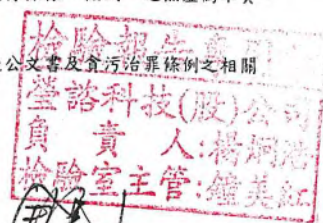 公文書及貪污治罪條例之相關
檢驗報告專用章
瑩諮科技(股)公司
負責人:楊烱港
檢驗室主管:鐘美紅